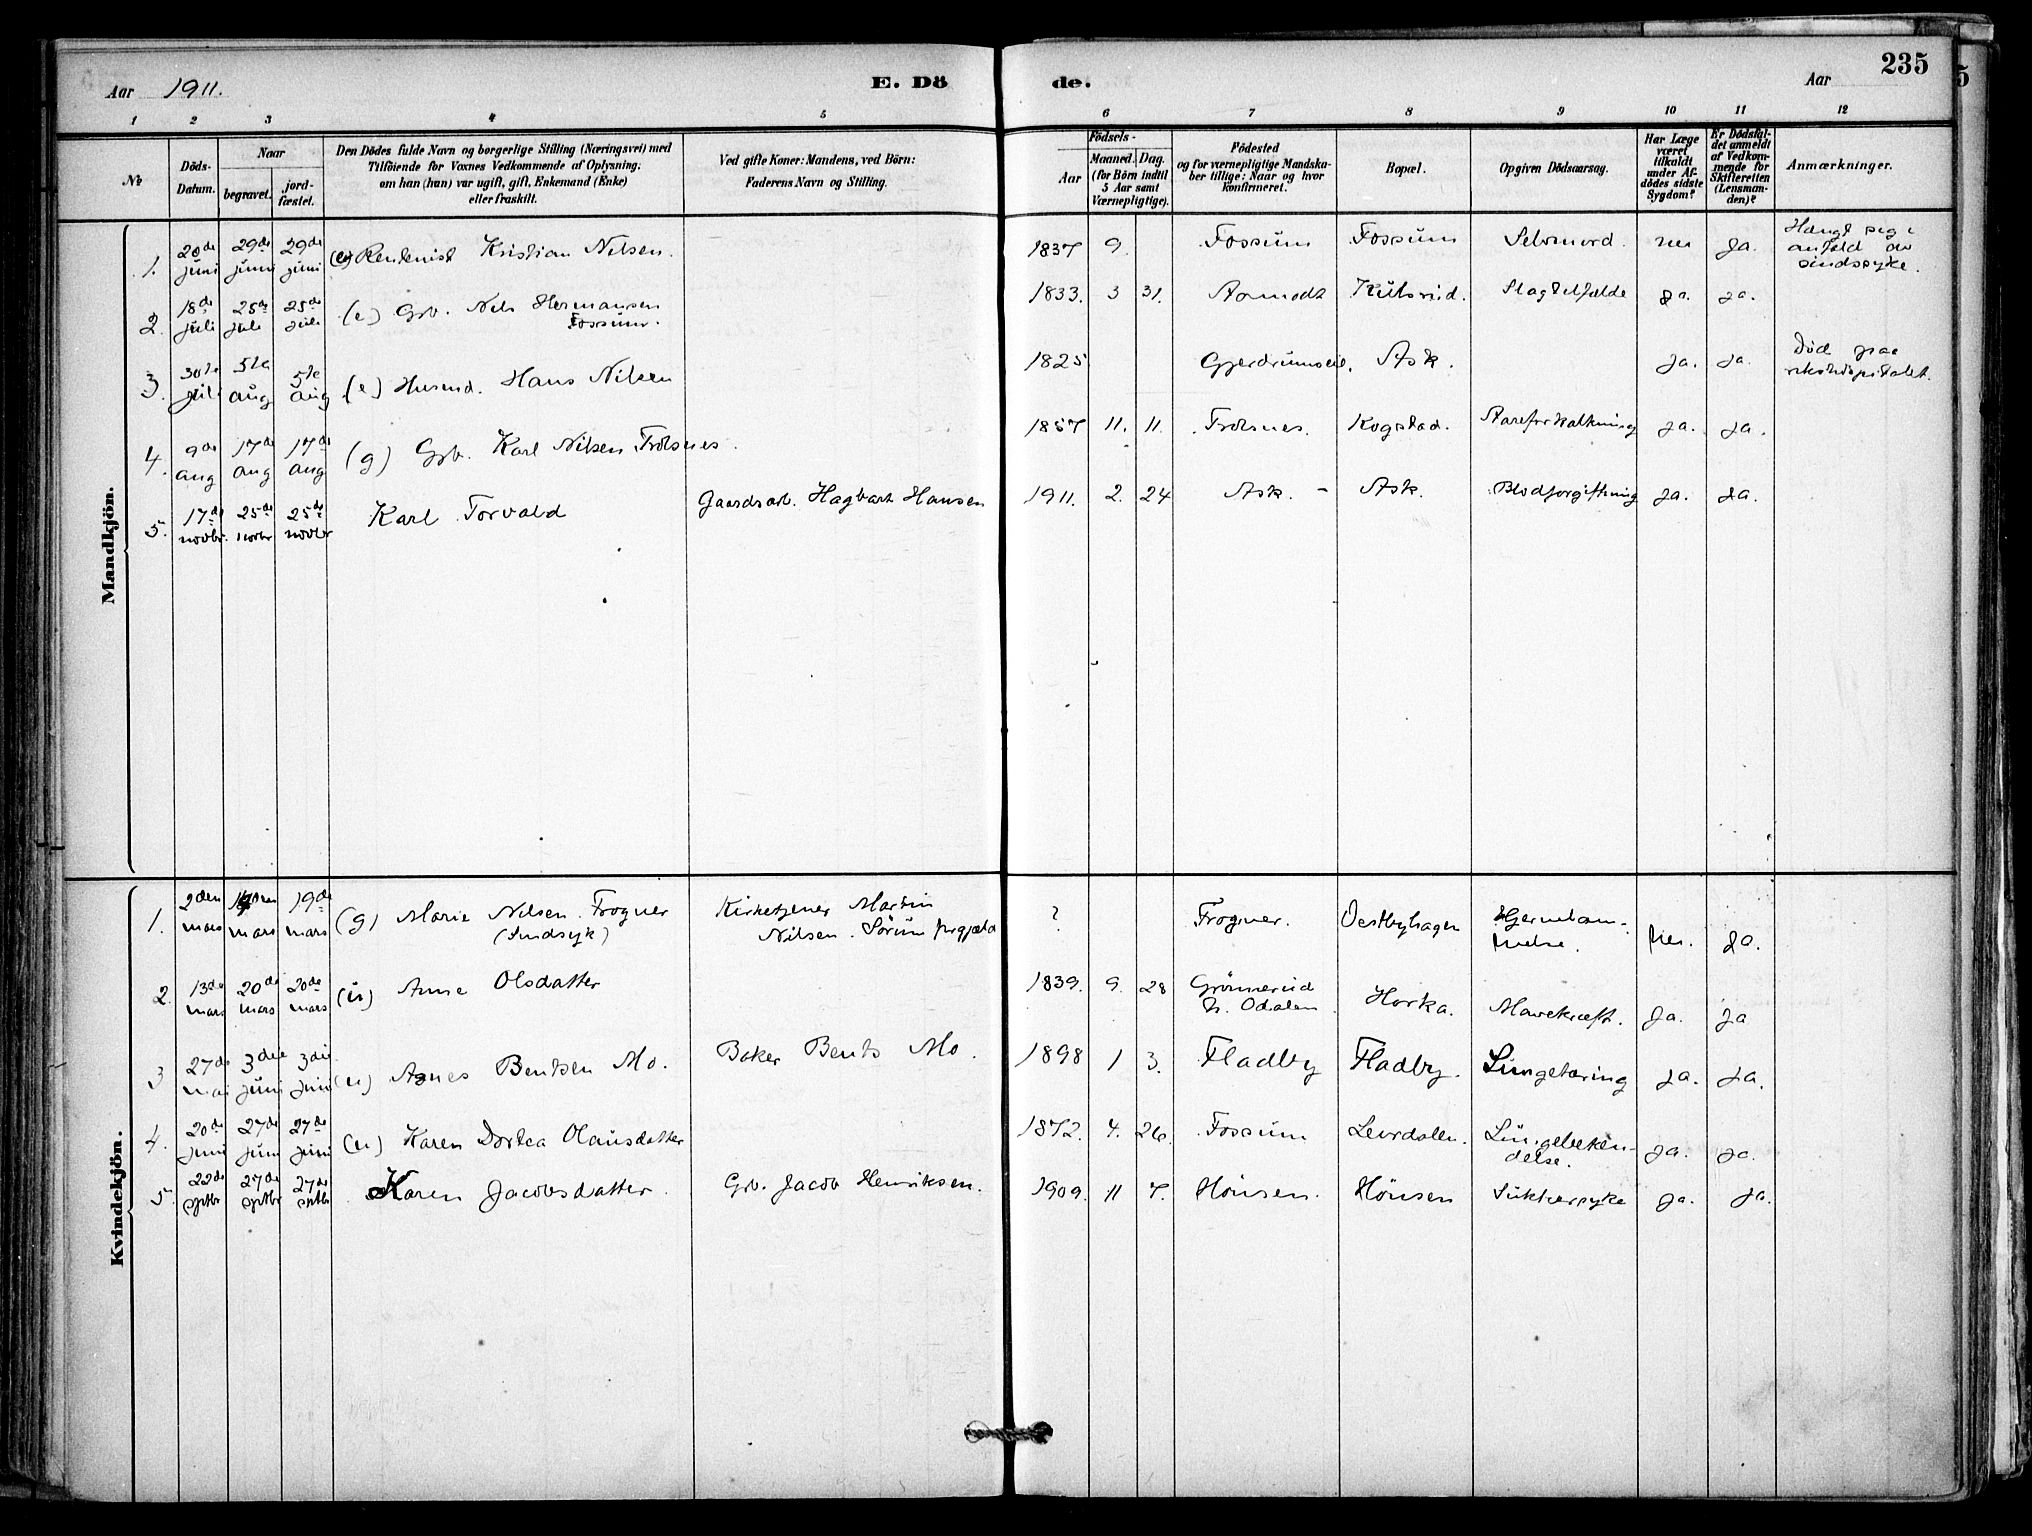 235
Aar 1911.
E. Dö
de.
Aar
1 2 3 4 5 6 7 8 9 10 11 12
№
Döds-
Datum.
Naar
begravet.
jord-
fæstet.
Den Dödes fulde Navn og borgerlige Stilling (Næringsvei) med
Tilföiende for Voxnes Vedkommende af Oplysning:
om han (hun) var ugift, gift, Enkemand (Enke)
eller fraskilt.
Ved gifte Koner: Mandens, ved Börn:
Faderens Navn og Stilling.
Födsels-
Aar
Maaned. Dag.
(for Börn indtil
5 Aar samt
Værnepligtige).
Födested
og for værnepligtige Mandska-
ber tillige: Naar og hvor
konfirmeret.
Bopæl.
Opgiven Dödsaarsag.
Har Læge
været
tilkaldt
under Af-
dödes sidste
Sygdom?
Er Dödsfal-
det anmeldt
af Vedkom-
mende for
Skifteretten
(Lensman-
den)?
Anmærkninger.
Mandkjön.
1. 20de juni 29de juni 29de juni (e) Rentenist Kristian Nilsen. 1837 9. Fossum Fossum Selvmord. nei Ja. Hængt seg i
anfald av
sindssyke.
2. 18de juli 25de juli 25de juli (e) Grb. Nils Hermansen
Fossum. 1833. 3 31. Aamodt Kulsrud. Slagtilfælde Ja. Ja.
3. 30te juli 5te aug 5te aug (e) Husmd. Hans Nilsen 1825 Gjerdrumseie. Ask. Ja. Ja. Död paa
rikshospitalet.
4. 9de aug 17de aug 17de aug (g) Grb. Karl Nilsen Trolsnes. 1857 11. 11. Trolsnes. Kogstad. Aareforkalkning Ja. Ja.
5. 17de novbr. 25de novbr 25de novbr Karl Torvald Gaardsarb. Hagbart Hansen 1911. 2. 24 Ask. - Ask. Blodforgiftning Ja. Ja.
Kvindekjön.
1. 2den mars mars 19de mars (g) Marie Nilsen Frogner
(Sindsyk) Kirketjener Martin
Nilsen. Sörum prgjæld ? Frogner. Vestbyhagen Hjernelam-
melse. Nei. Ja.
2. 13de mars 20de mars 20de mars (u) Anne Olsdatter 1839. 9. 28 Grönnerud
n. Odalen Horka. Mavekræft. Ja. Ja
3 27de mai 3die juni 3die juni (u) Agnes Bentsen Mo. Baker Bents Mo. 1898 1 3. Fladby Fladby. Lungetæring Ja. Ja.
4. 20de juni 27de juni 27de juni (u) Karen Dortea Olausdatter 1872. 4. 26. Fossum Leirdalen. Lungebetæn-
delse. Ja. Ja.
5. 22de sptbr 27de sptbr 27de sptbr Karen Jacobsdatter. Grb. Jacob Henriksen. 1909. 11 7. Hönsen. Hönsen Sukkersyke Ja. Ja.